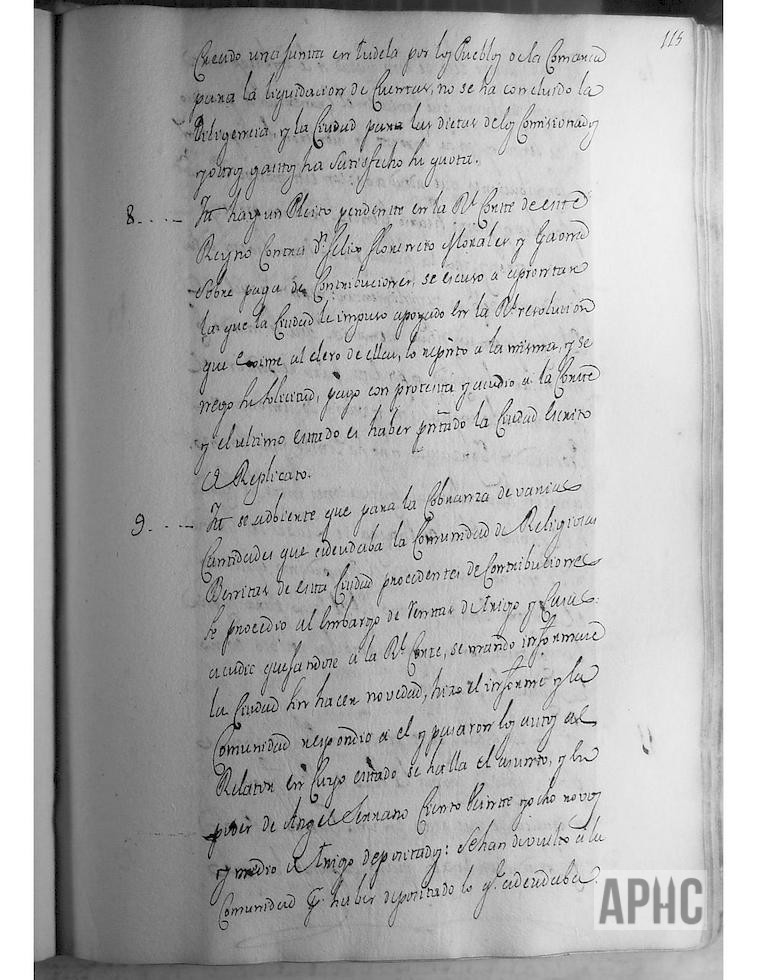 115
una Junta en Tudela por los Pueblos de la Comarca
para la liquidacion de Cuentas, no se ha concluido la
Diligencia, y la Ciudad para las dietas de los Comisionados
y otros gastos ha satisfecho su quota.
8. Itt hay un Pleito pendiente en la Rl. Corte de este
Reyno Contra Dn. Felix Florencio Morales y
sobre paga de Contribuciones, se escuso a aprontar
la que la Ciudad le impuso apoyado en la Rl. resolucion
que exime al clero de ellas, lo repitio a la misma, y se
nego su solicitud, pago con protesta y acudio a la Corte
y el ultimo estado es haber pntado la Ciudad Escrito
de Replicato.
9. Itt se adbierte que para la Cobranza de varias
Cantidades que adeudaba la Comunidad de Religiosas
de esta Ciudad procedentes de Contribuciones
se procedio al Embargo de Rentas de Trigo y Casas:
acudio quejandose a la Rl. Corte, se mando informase
la Ciudad sin hacer novedad, hizo el informe y la
Comunidad respondio a el y pasaron los autos al
Relator en Cuyo estado se halla el asunto, y en
poder de Angel Serrano Ciento Veinte y ocho robos
y medio de trigo depositados: se han devuelto a la
Comunidad pr. haber depositado lo qe. adeudaba.
APHC